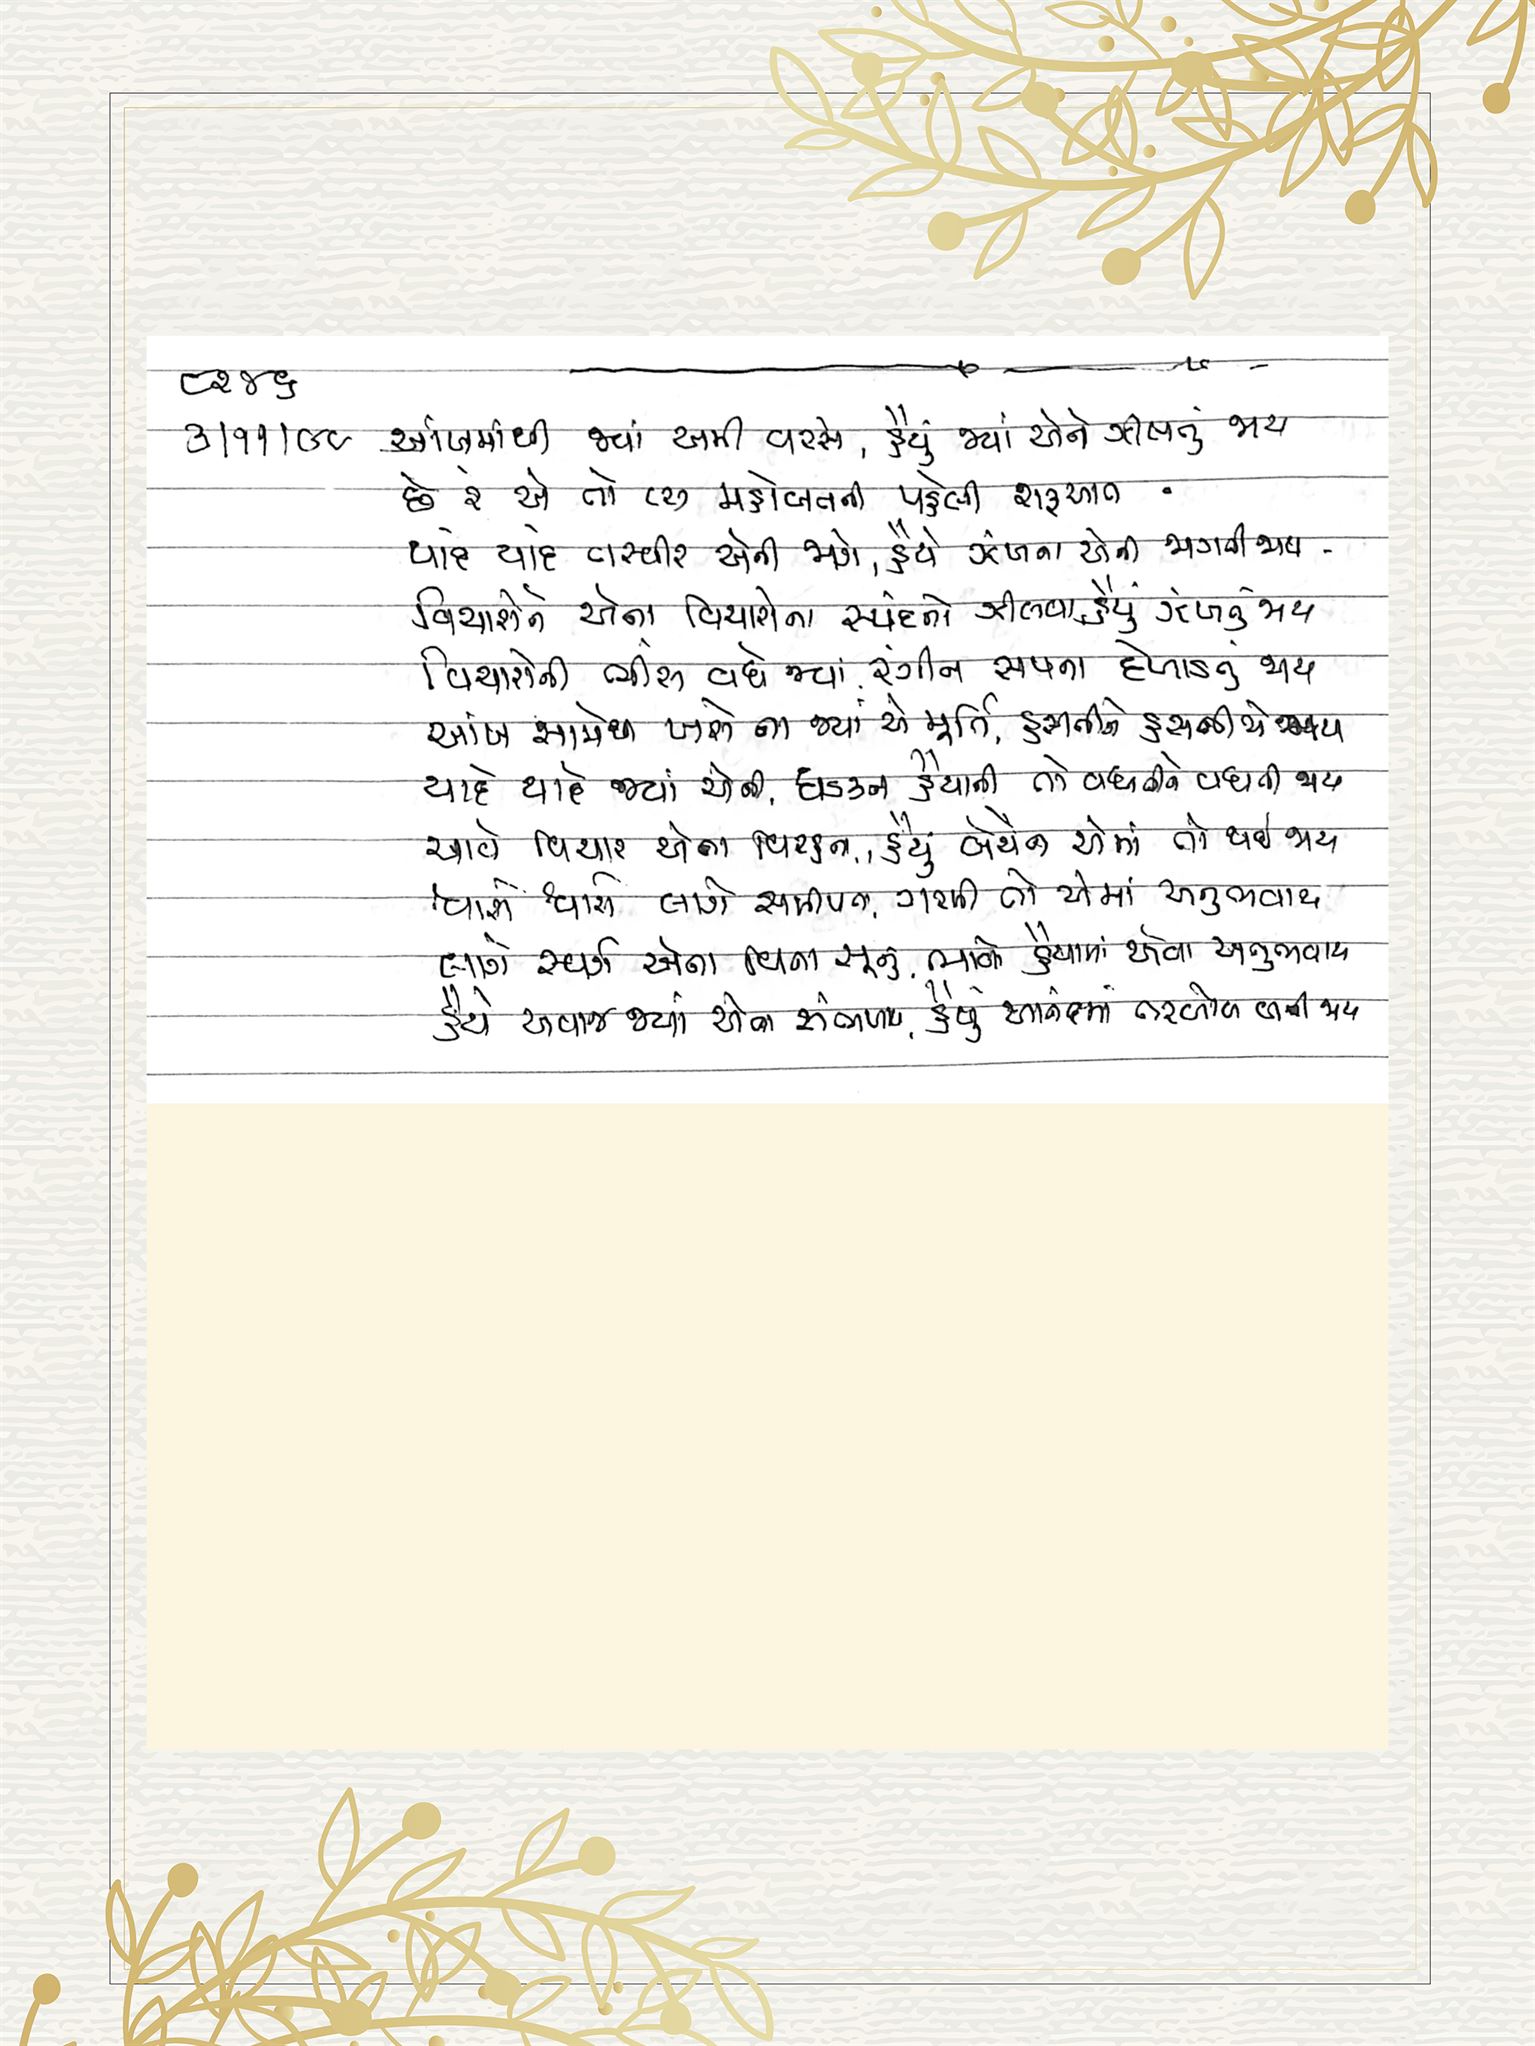 ૮૨૪૬
૩/૧૧/૯૯ આંખમાંથી જ્યાં અમી વરસે, હૈયું જ્યાં એને ઝીલતું જાય
છે રે એ તો રે મહોબતની પહેલી શરૂઆત
યાદે યાદે તસ્વીર એની જાગે, હૈયે ઝંખના એની જાગતી જાય
વિચારોને એના વિચારોના સ્પંદનો ઝીલવા, હૈયું ઝંખતું જાય
વિચારોની ભીંસ વધે જ્યાં, રંગીન સપના દેખાડતું જાય
આંખ સામેથી ખસે ના જ્યાં એ મૂર્તિ, હસતીને હસતી એ જાય
યાદે યાદે જ્યાં એની, ધડકન હૈયાની તો વધતીને વધતી જાય
આવે વિચાર એના વિરહના, હૈયું બેચેન એમાં તો થઈ જાય
શ્વાસે શ્વાસે લાગે સમીપતા, ગરમી તો એમાં અનુભવાય
લાગે સ્વર્ગ એના વિના સૂનું, હૈયામાં એવા અનુભવાય
હૈયે અવાજ જ્યાં એના સંભળાય, હૈયું આનંદમાં તરબોળ બની જાય